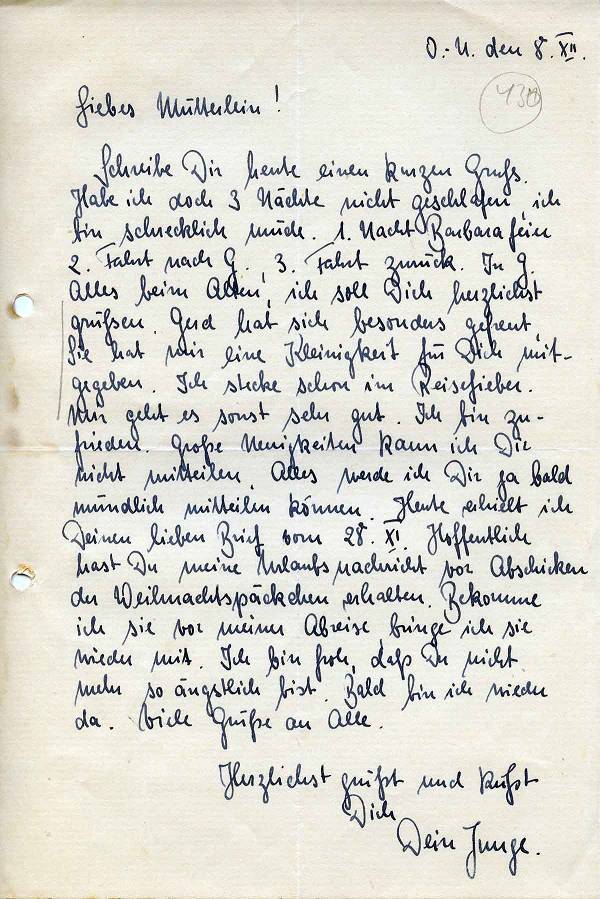 O.-U. den 8. XII.
430
Liebes Mütterlein!
Schreibe Dir heute einen kurzen Gruß.
Habe ich doch 3 Nächte nicht geschlafen, ich
bin schrecklich müde. 1. Nacht Barbarafeier
2. Fahrt nach G., 3. Fahrt zurück. In G.
Alles beim Alten, ich soll Dich herzlichst
grüßen. Gerd hat sich besonders gefreut,
Sie hat mir eine Kleinigkeit für Dich mit-
gegeben. Ich stecke schon im Reisefieber.
Mir geht es sonst sehr gut. Ich bin zu-
frieden. Große Neuigkeiten kann ich Dir
nicht mitteilen. Alles werde ich Dir ja bald
mündlich mitteilen können. Heute erhielt ich
Deinen lieben Brief vom 28. XI. Hoffentlich
hast Du meine Urlaubsnachricht vor Abschicken
der Weihnachtspäckchen erhalten. Bekomme
ich sie vor meiner Abreise bringe ich sie
wieder mit. Ich bin froh, daß Du nicht
mehr so ängstlich bist. Bald bin ich wieder
da. Viele Grüße an Alle.
Herzlichst grüßt und küßt
Dich
Dein Junge.